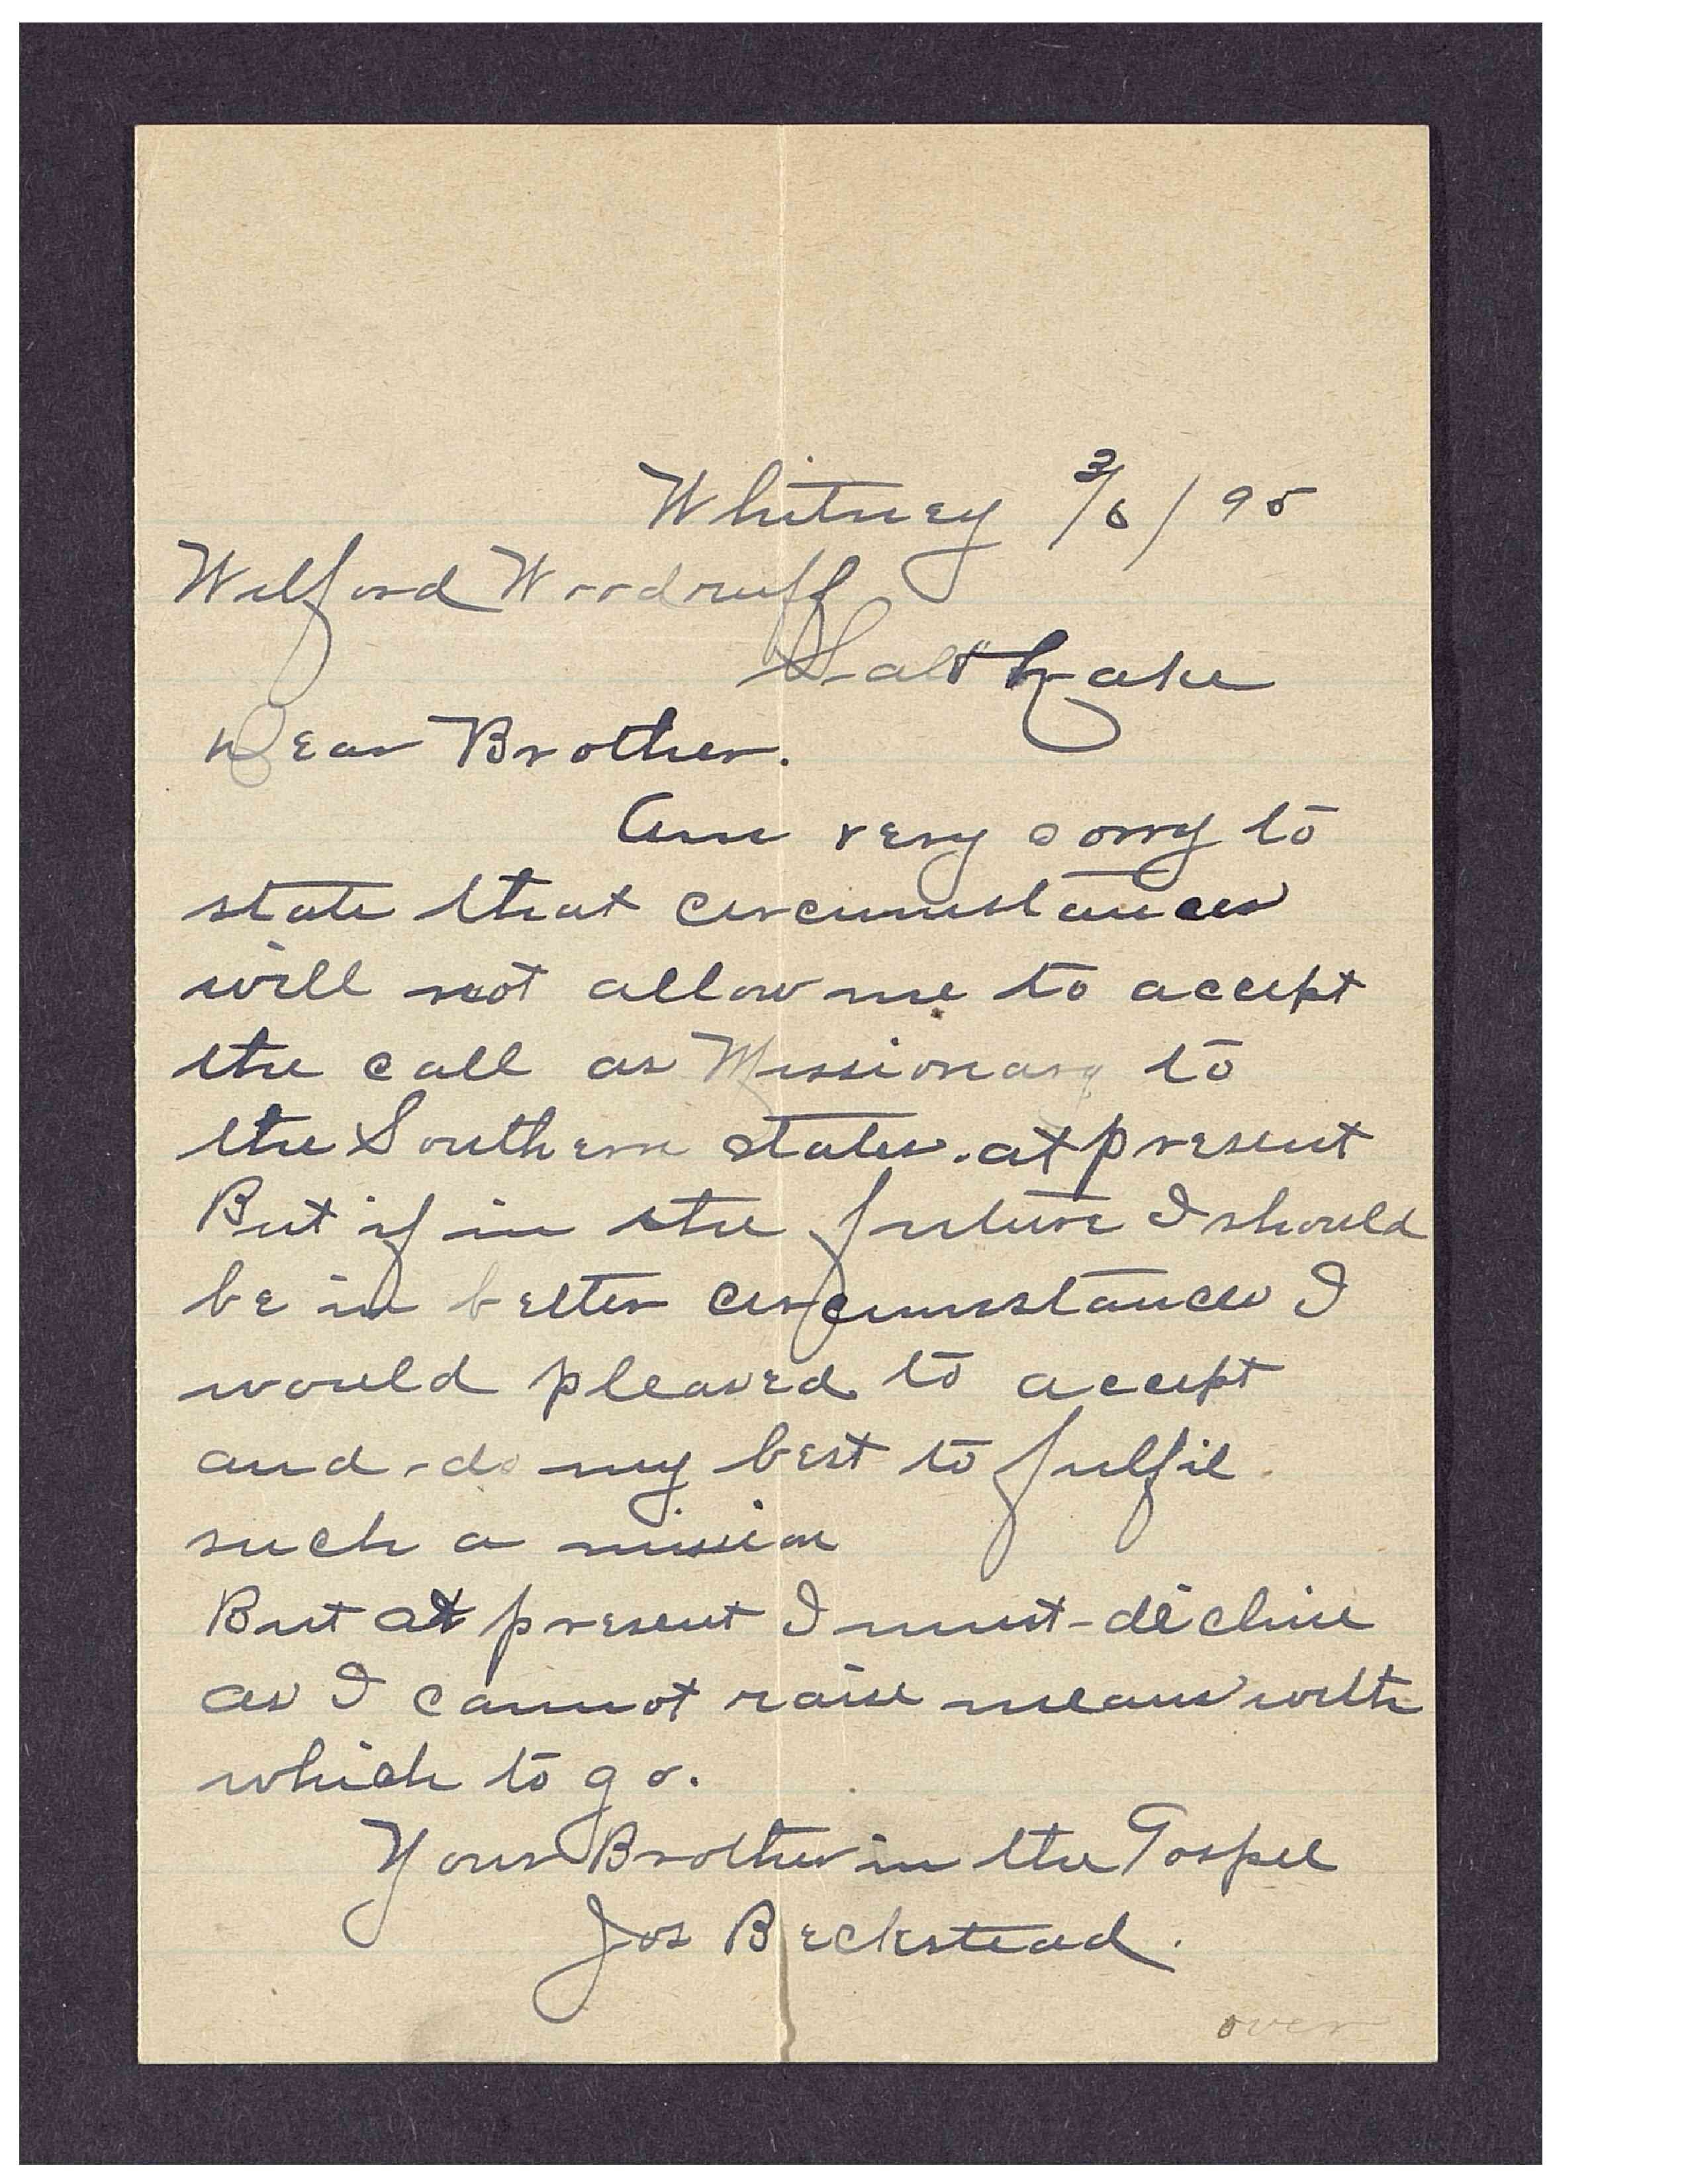 Whitney 3/6/95
Wilford Woodruff
Salt Lake
Dear Brother.
Am very sorry to
state that circumstances
will not allow me to accept
the call as Missionary to
the Southern states. at present
But if in the future I should
be in better circumstances I
would pleased to accept
and do my best to fulfil
such a mission
But at present I must decline
as I cannot raise means with
which to go.
Your Brother in the Gospel
Jos Beckstead.
over